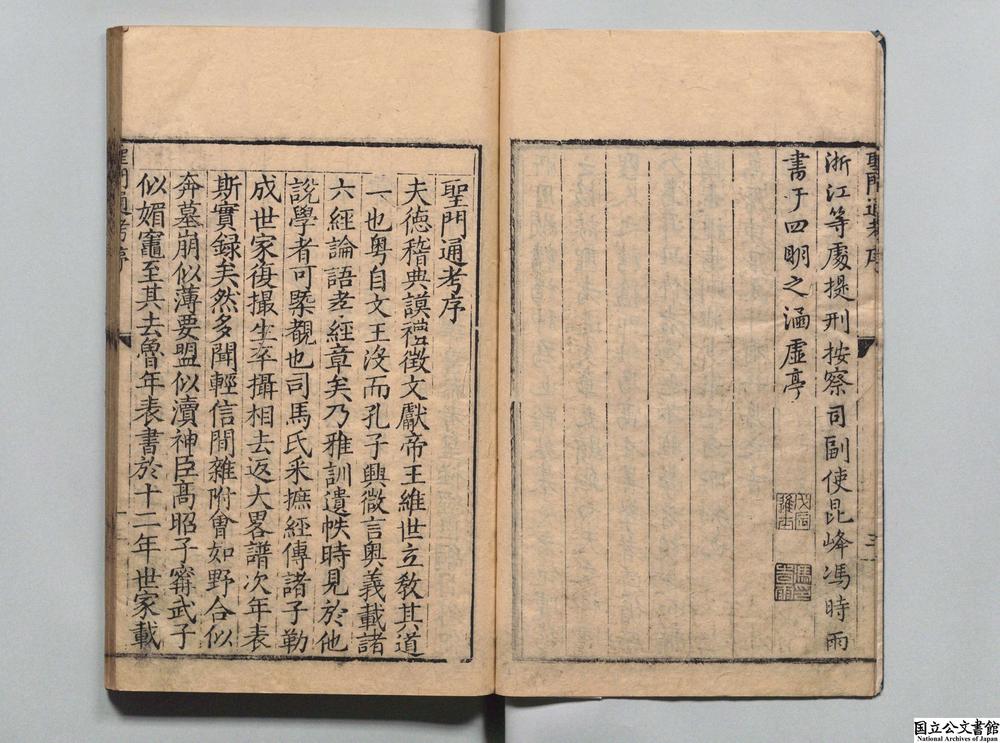 聖門通考序
三
浙江等處提刑按察司副使昆峰馮時雨
書于四明之涵虛亭
聖門通考序
夫德稽典謨禮徵文獻帝王維世立教其道
一也粤自文王沒而孔子興微言奥義載諸
六經論語孝經章矣乃雅訓遺帙時見於他
說學者可槩觀也司馬氏釆摭經傳諸子勒
成世家復撮生卒攝相去返大畧譜次年表
斯實録矣然多聞輕信間雜附會如野合似
奔墓崩似薄要盟似瀆神臣髙昭子甯武子
似媚竈至其去魯年表書於十二年世家載
聖門通考序
一
国立公文書館
National Archives of Japan